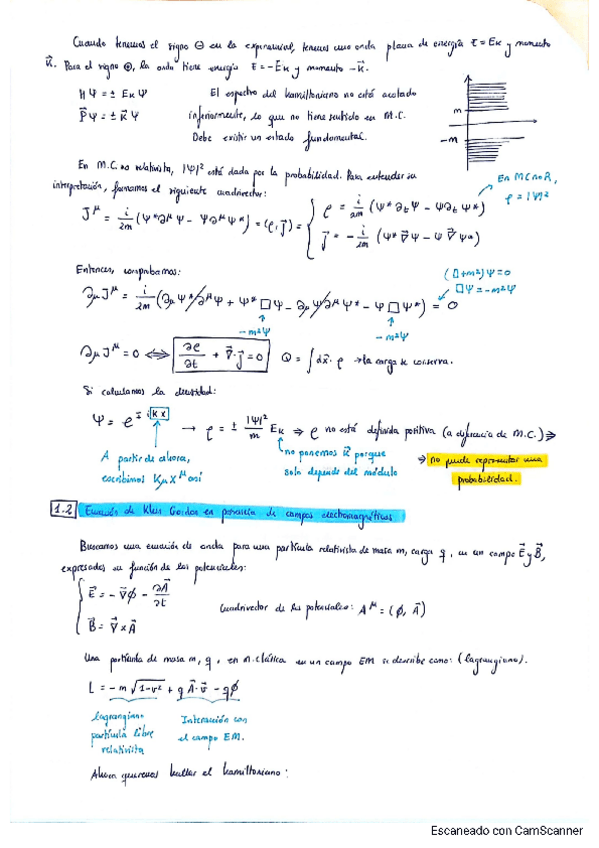 Cuando tenemos el signo ⊖ en la exponencial, tenemos una onda plana de energía E = Eₖ y momento
k⃗. Para el signo ⊕, la onda tiene energía E = -Eₖ y momento -k⃗.
HΨ = ± EₖΨ
P⃗Ψ = ± k⃗Ψ
El espectro del hamiltoniano no está acotado
inferiormente, lo que no tiene sentido en M.C.
Debe existir un estado fundamental.
m
-m
En M.C. no relativista, |Ψ|² está dada por la probabilidad. Para entender su
interpretación, formamos el siguiente cuadrivector:
J^μ = i/2m (Ψ*∂^μΨ - Ψ∂^μΨ*) = (ρ, j⃗) = { ρ = i/2m (Ψ*∂ₜΨ - Ψ∂ₜΨ*)
j⃗ = - i/2m (Ψ*∇⃗Ψ - Ψ∇⃗Ψ*)
En MCnoR,
ρ = |Ψ|²
Entonces, comprobamos:
(□+m²)Ψ=0
□Ψ = -m²Ψ
∂_μJ^μ = i/2m (∂_μΨ*∂^μΨ + Ψ*□Ψ - ∂_μΨ∂^μΨ* - Ψ□Ψ*) = 0
-m²Ψ
-m²Ψ
∂_μJ^μ = 0 ⟺ ∂ρ/∂t + ∇⃗·j⃗ = 0 Q = ∫dx⃗· ρ → la carga se conserva.
Si calculamos la densidad:
Ψ = e^{∓ikx} → ρ = ± |Ψ|²/m Eₖ ⇒ ρ no está definida positiva (a diferencia de M.C.) ⇒
⇒ no puede representar una
probabilidad.
A partir de ahora,
escribimos K_μx^μ así
no ponemos k⃗ porque
solo depende del módulo
1.2 Ecuación de Klein Gordon en presencia de campos electromagnéticos
Buscamos una ecuación de onda para una partícula relativista de masa m, carga q, en un campo E⃗ y B⃗,
expresados en función de los potenciales:
E⃗ = -∇⃗ϕ - ∂A⃗/∂t
B⃗ = ∇⃗×A⃗
Cuadrivector de los potenciales: A^μ = (ϕ, A⃗)
Una partícula de masa m, q, en m. clásica en un campo EM se describe como: (lagrangiano).
L = -m√(1-v²) + q A⃗·v⃗ - qϕ
lagrangiano
partícula libre
relativista
Interacción con
el campo EM.
Ahora queremos hallar el hamiltoniano:
Escaneado con CamScanner